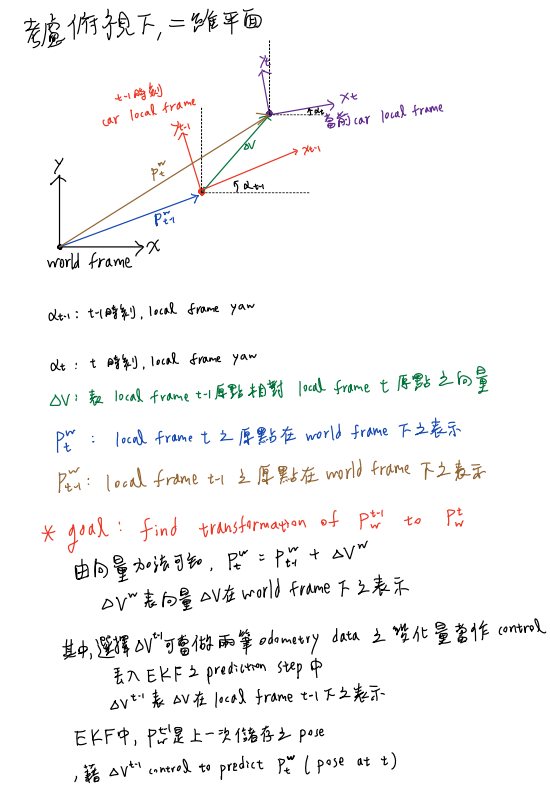 考慮俯視下,二維平面
t-1時刻
car local frame
Yt
Xt
當前car local frame
αt
Yt-1
ΔV
Xt-1
αt-1
Y
P^w_t
P^w_t-1
X
world frame
αt-1: t-1時刻, local frame yaw
αt: t 時刻, local frame yaw
ΔV: 表 local frame t-1原點相對 local frame t 原點之向量
P^w_t : local frame t 之原點在 world frame 下之表示
P^w_t-1: local frame t-1 之原點在 world frame 下之表示
* goal: find transformation of P^t-1_w to P^t_w
由向量加法可知, P^w_t = P^w_t-1 + ΔV^w
ΔV^w 表向量 ΔV在 world frame 下之表示
其中,選擇 ΔV^t-1可當做兩筆 odometry data 之變化量當作 control
丟入 EKF 之 prediction step 中
ΔV^t-1 表 ΔV在 local frame t-1 下之表示
EKF中, P^t-1_w是上一次儲存之 pose
,藉 ΔV^t-1 control to predict P^w_t (pose at t)